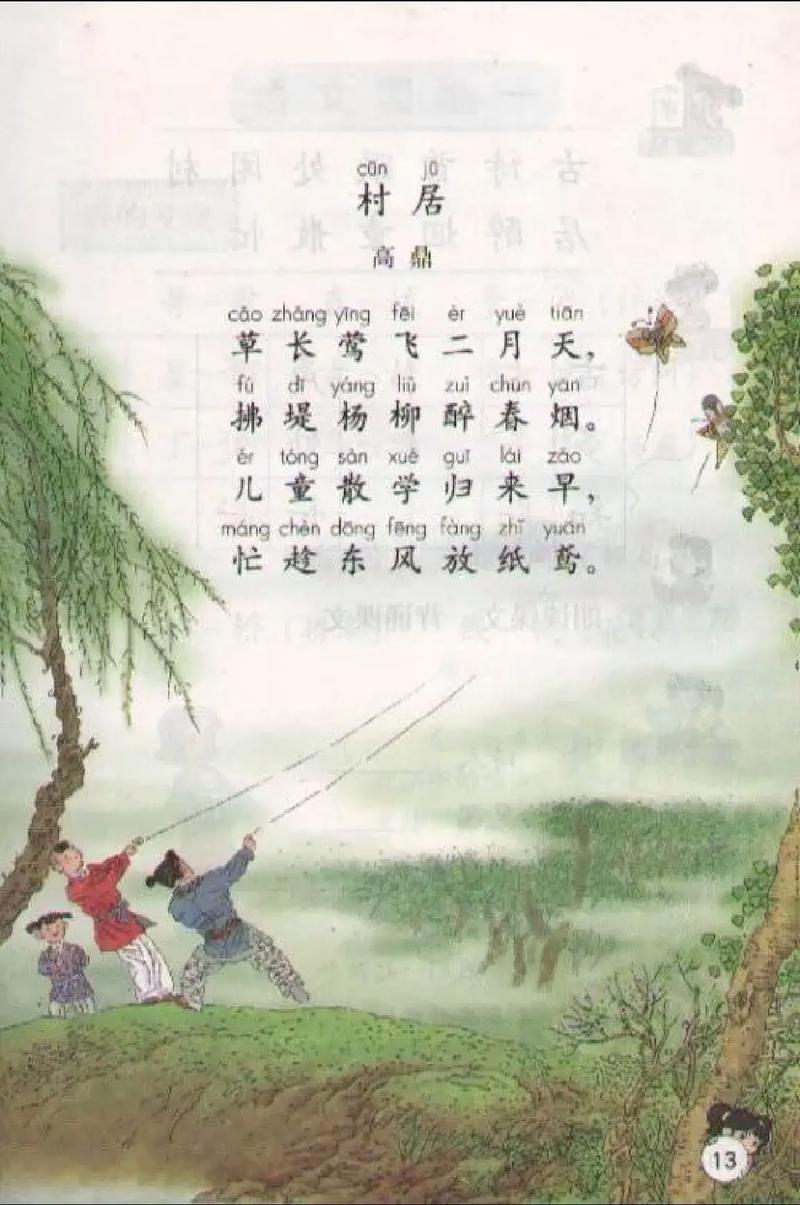 cūn jū
村居
高鼎
cǎo zhǎng yīng fēi èr yuè tiān
草长莺飞二月天，
fú dī yáng liǔ zuì chūn yān
拂堤杨柳醉春烟。
ér tóng sàn xué guī lái zǎo
儿童散学归来早，
máng chèn dōng fēng fàng zhǐ yuān
忙趁东风放纸鸢。
13